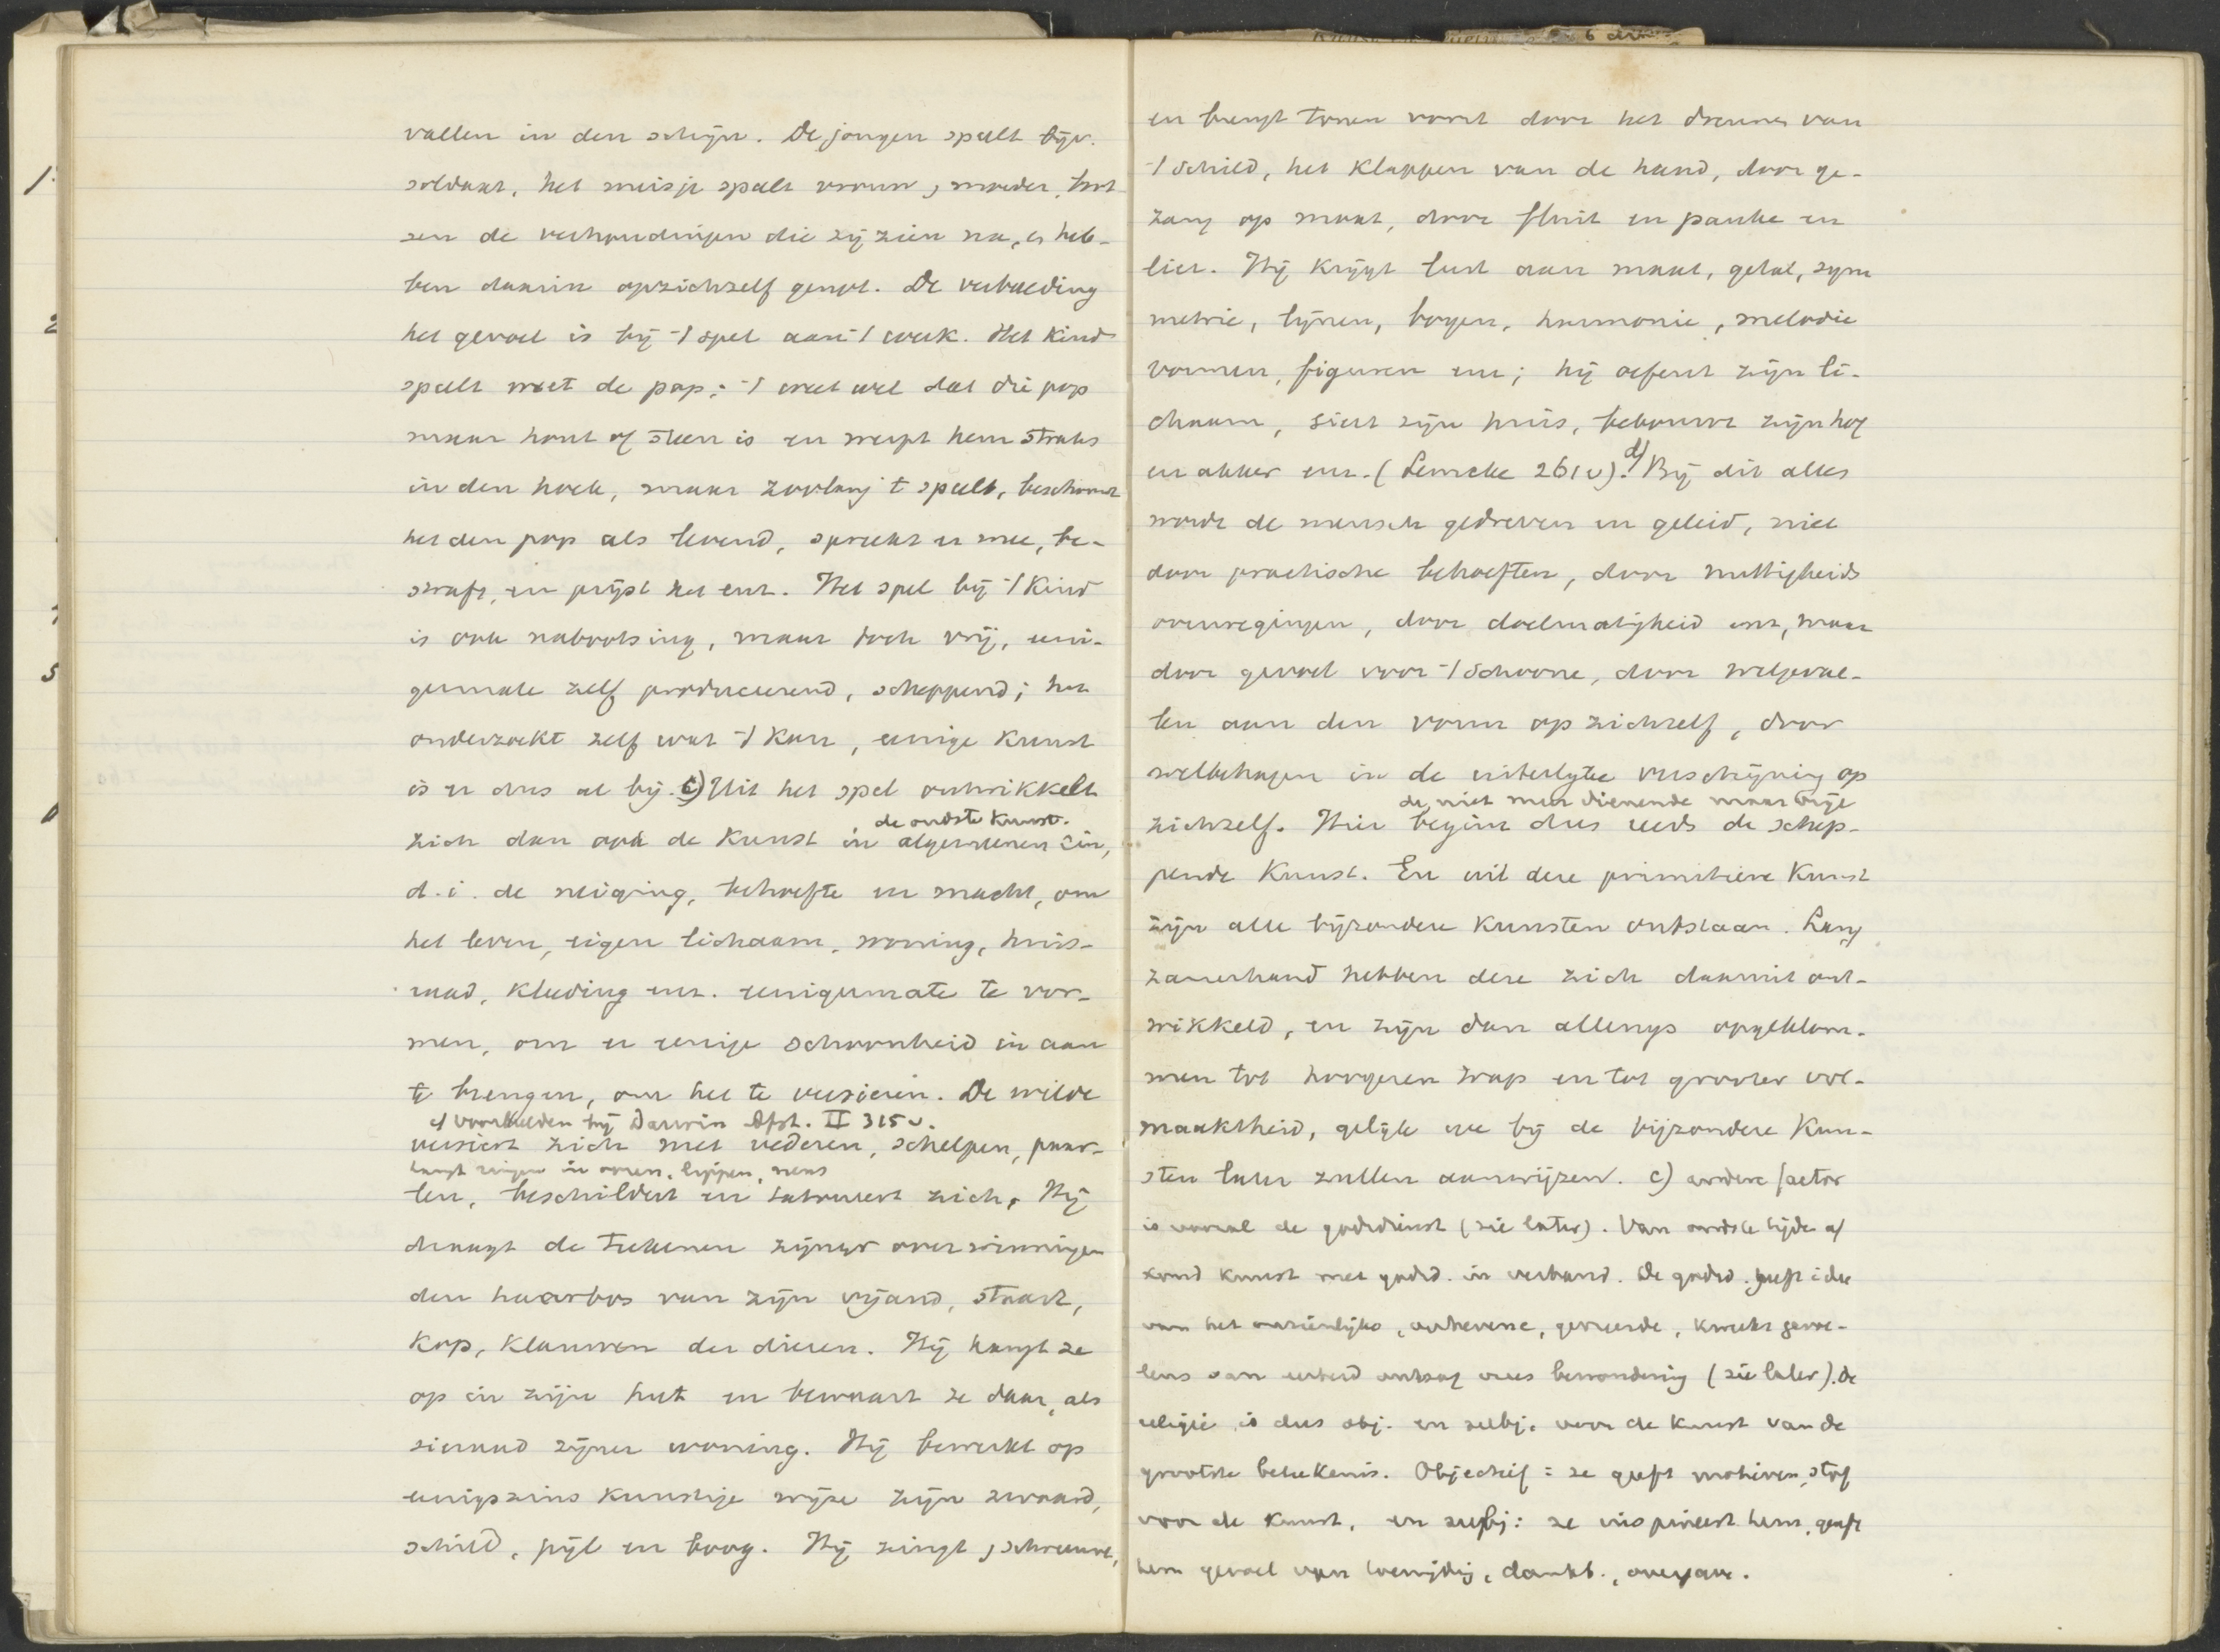 vallen in den schijn. De jongen speelt bijv.
soldaat, het meisje speelt vrouw, moeder, boot
sen de verhoudingen die zij zien na, en heb-
ben daarin opzichzelf genot. De verbeelding
het gevoel is bij 't spel aan 't werk. Het kind
speelt met de pop; 't weet wel dat die pop
maar hout of steen is en werpt hem straks
in den hoek, maar zoolang 't speelt, beschouwt
het den pop als levend, spreekt er mee, be-
straft, en prijst het enz. Het spel bij 't kind
is ook nabootsing, maar toch vrij, eeni-
germate zelf produceerend, scheppend; het
onderzoekt zelf wat 't kan, eenige kunst
is er dus al bij. c) Uit het spel ontwikkelt
de oudste kunst.
zich dan ook de kunst in algemeenen zin,
d.i. de neiging, behoefte en macht, om
het leven, eigen lichaam, woning, huis-
raad, kleeding enz. eenigermate te vor-
men, om er eenige schoonheid in aan
te brengen, om het te versieren. De wilde
cf voorbeelden bij Darwin Afst. II 315v.
versiert zich met vederen, schelpen, paar-
hangt ringen in ooren, lippen, neus
len, beschildert en tatoueert zich. Hij
draagt de teekenen zijner overwinningen
den haarbos van zijn vijand, staart,
kop, klauwen der dieren. Hij hangt ze
op in zijn hut en bewaart ze daar, als
sieraad zijner woning. Hij bewerkt op
eenigszins kunstige wijze zijn zwaard,
schild, pijl en boog. Hij zingt, schreeuwt,
en brengt tonen voort door het dreunen van
't schild, het klappen van de hand, door ge-
zang op maat, door fluit en pauke en
lier. Hij krijgt lust aan maat, getal, sym
metrie, lijnen, bogen, harmonie, melodie
vormen, figuren enz; hij oefent zijn li-
chaam, siert zijn huis, bebouwt zijn hof
en akker enz. (Lemcke 261v). d) Bij dit alles
wordt de mensch gedreven en geleid, niet
door practische behoeften, door nuttigheids
overwegingen, door doelmatigheid enz, maar
door gevoel voor 't schoone, door welgeval-
len aan den vorm op zichzelf, door
welbehagen in de uiterlijke verschijning op
de niet meer dienende maar vrije
zichzelf. Hier begint dus reeds de schep-
pende kunst. En uit deze primitieve kunst
zijn alle bijzondere kunsten ontstaan. Lang
zamerhand hebben deze zich daaruit ont-
wikkeld, en zijn dan allengs opgeklom-
men tot hoogeren trap en tot grooter vol-
maaktheid, gelijk we bij de bijzondere kun-
sten later zullen aanwijzen. c) andere factor
is vooral de godsdienst (zie later). Van oudste tijden af
stond kunst met godsd. in verband. De godsd. geeft idee
van het onzienlijke, verhevene, gevreesde, kweekt gevoe-
lens van eerbied ontzag vrees bewondering (zie later). De
religie is dus obj. en subj. voor de kunst van de
grootste beteekenis. Objectief: ze geeft motieven, stof
voor de kunst, en subj: ze inspireert hem, geeft
hem gevoel van toewijding, dankb., overgave.